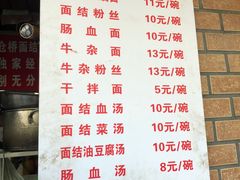 11元/碗
面结粉丝 10元/碗
肠血面 10元/碗
牛杂面 13元/碗
牛杂粉丝 13元/碗
干拌面 5元/碗
面结血汤 10元/碗
面结菜汤 10元/碗
面结油豆腐汤 10元/碗
肠血汤 8元/碗
仓桥面结
独家经
别无分